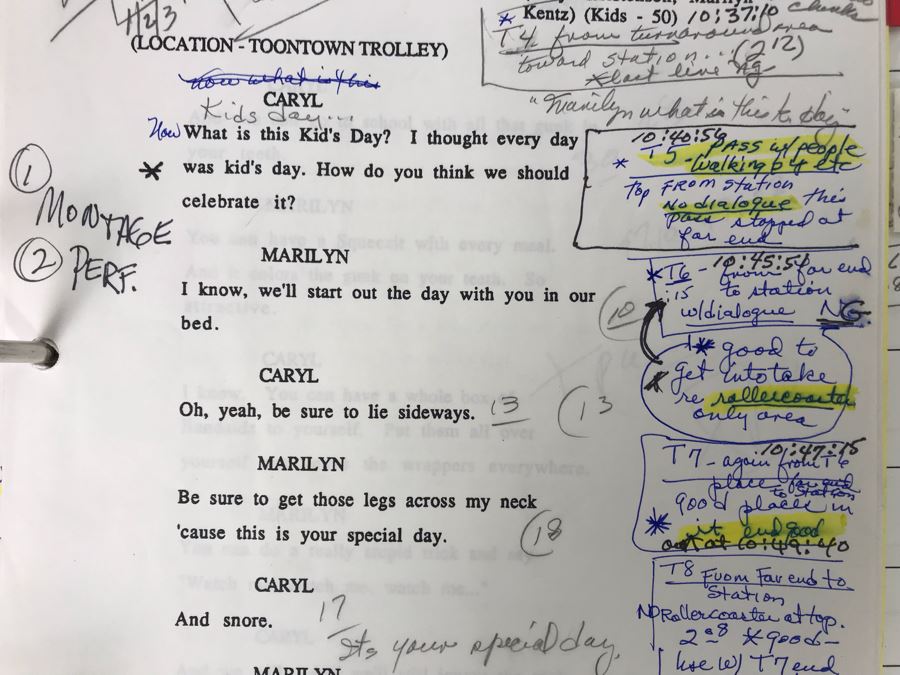 1/2/3
Kentz) (Kids - 50) 10:37:10
* T4 from turnaround area
toward station... (2 12)
* last line NG
(LOCATION - TOONTOWN TROLLEY)
now what is this
CARYL
Kids day...
"Marilyn what is this k day"
Now What is this Kid's Day? I thought every day
* was kid's day. How do you think we should
celebrate it?
① MONTAGE
② PERF.
10:40:56
* T5 - PASS w/ people
walking by etc
Top FROM Station
No dialogue this
pass stopped at
far end
MARILYN
I know, we'll start out the day with you in our
bed.
10
10:45:56
* T6 - from far end
:15 to station
w/dialogue NG
* good to
get into take
re rollercoaster
only area
CARYL
Oh, yeah, be sure to lie sideways. 13
13
10:47:15
T7 - again from T6
place far end
to station
good places in
* it end good
out at 10:49:40
MARILYN
Be sure to get those legs across my neck
'cause this is your special day.
18
T8 From Far end to
Station
NO Rollercoaster at top.
2 08 * good -
use w/ T7 end
CARYL
And snore. 17
Its your special day.
MARILYN